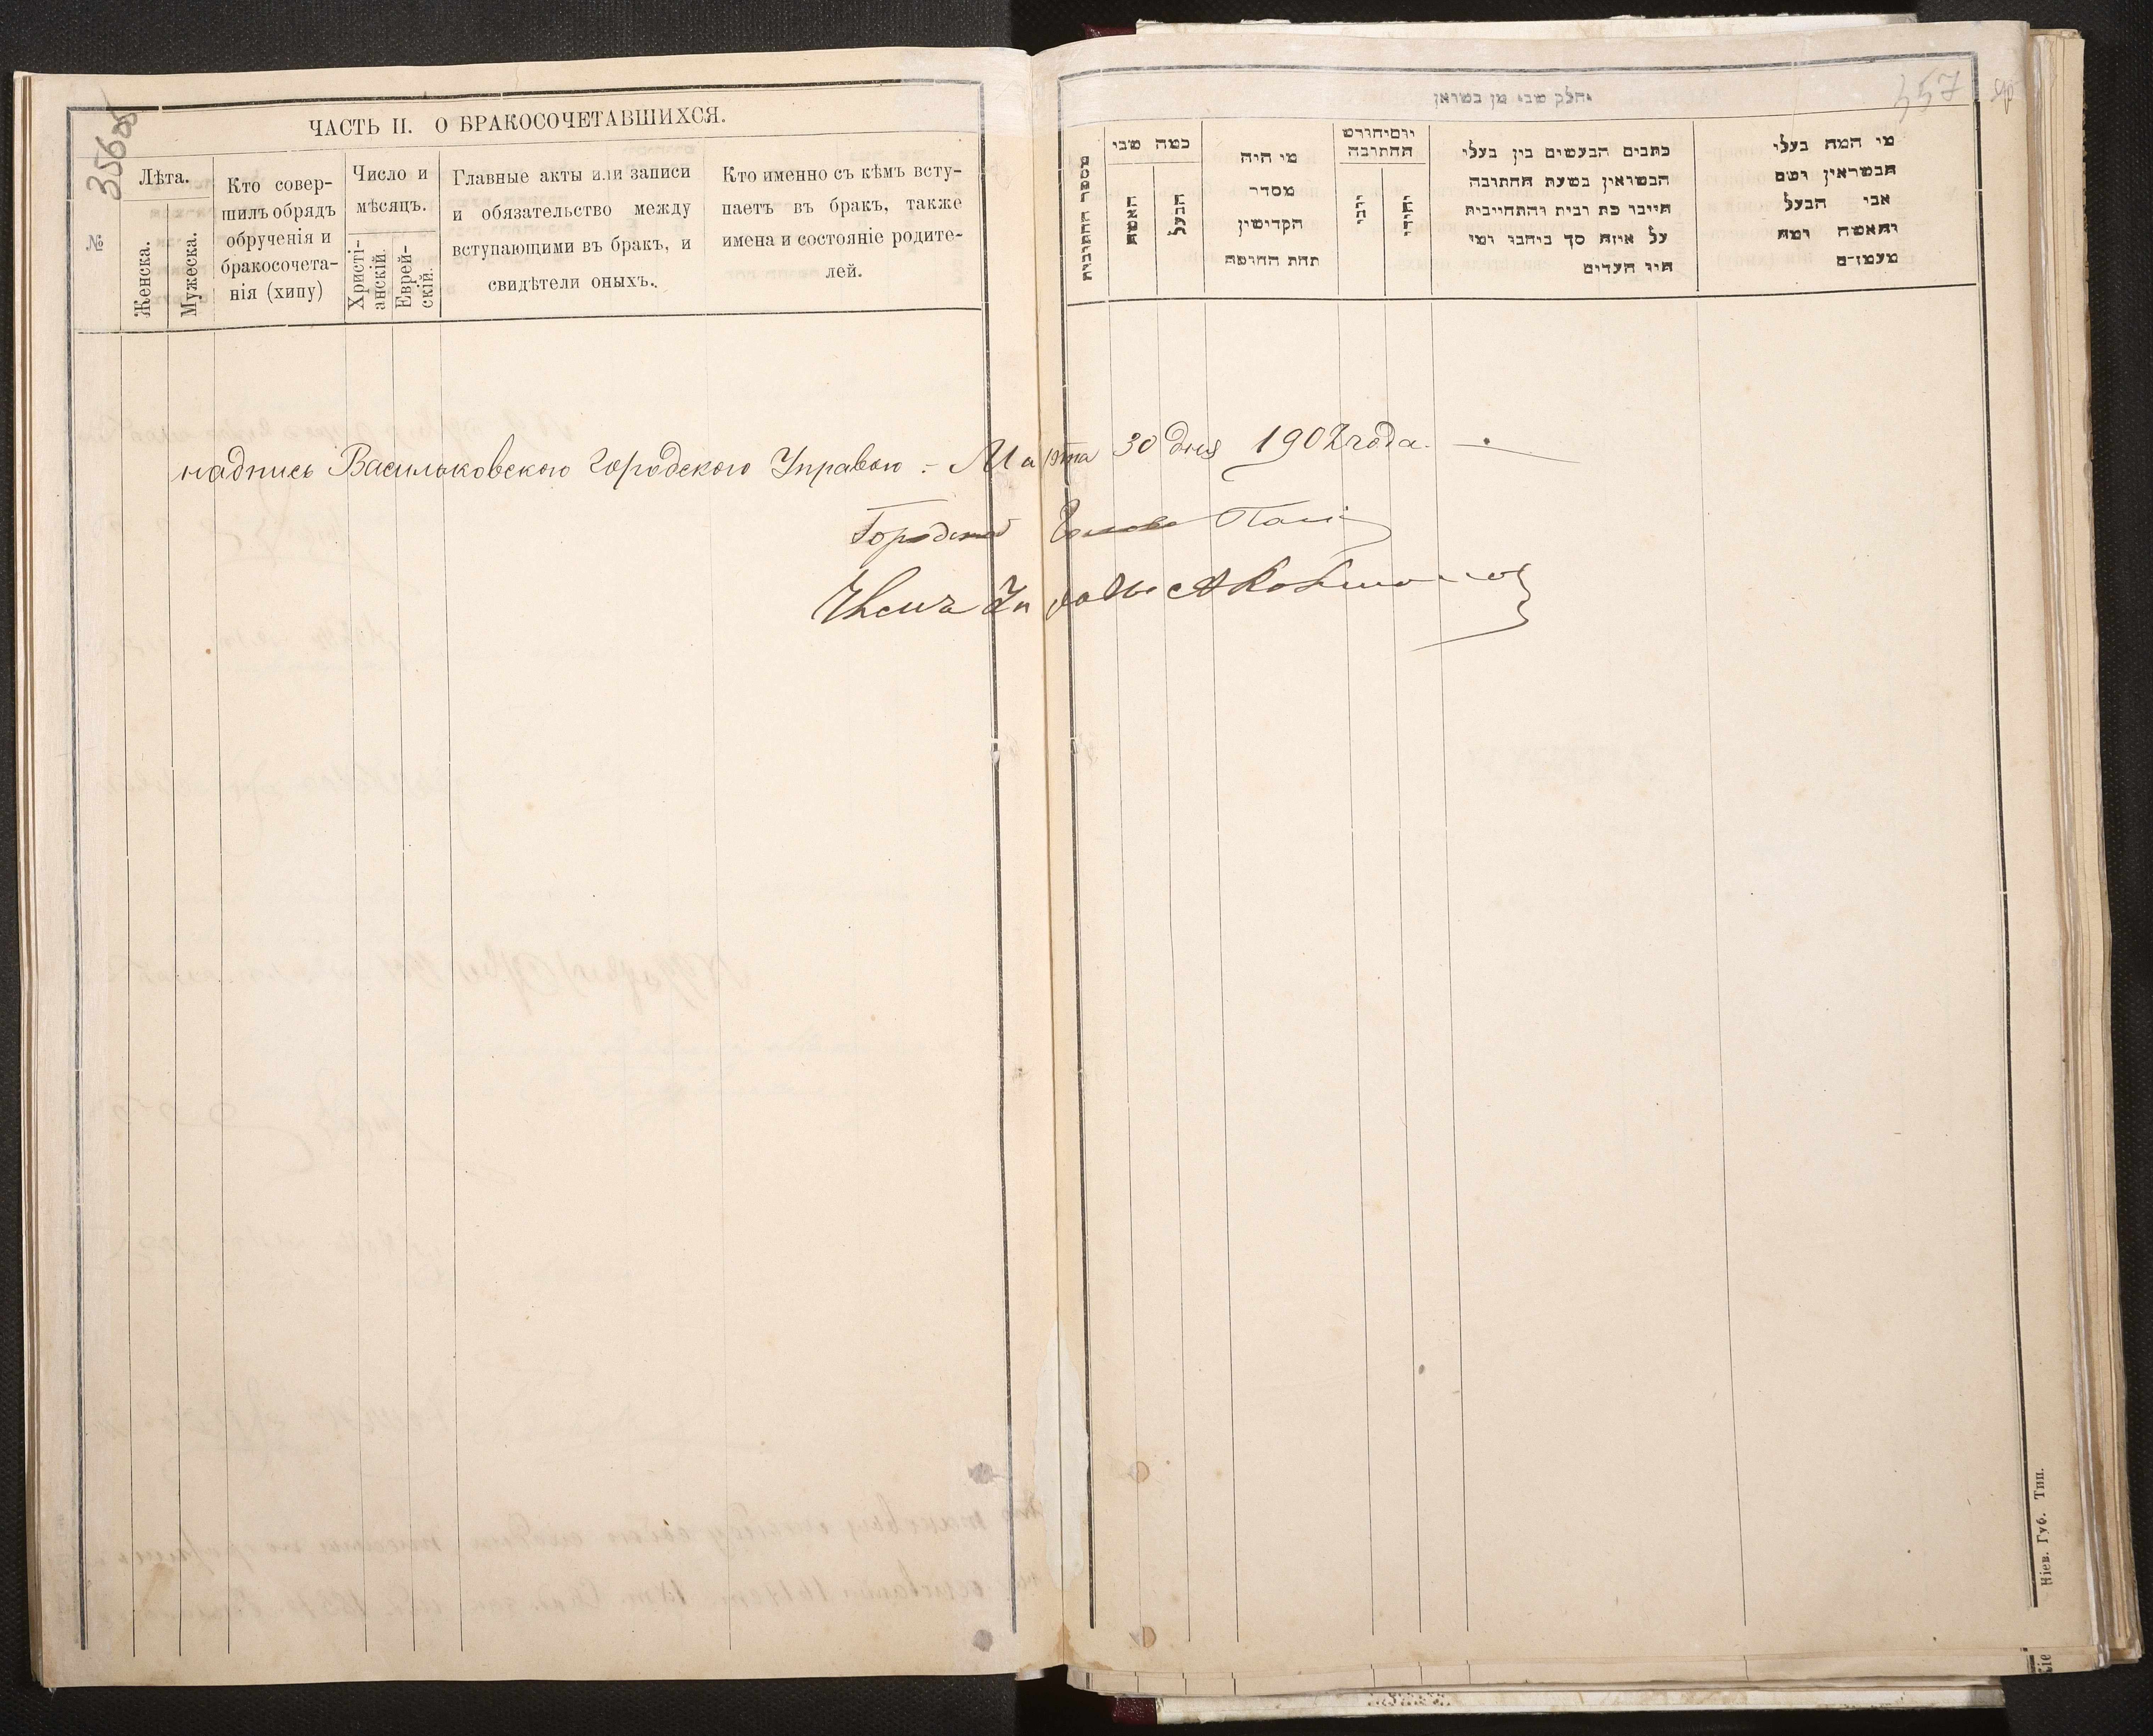 356об
ЧАСТЬ II. О БРАКОСОЧЕТАВШИХСЯ.
№
Лѣта.
Женска.
Мужеска.
Кто совер-
шилъ обрядъ
обрученія и
бракосочета-
нія (хипу)
Число и
мѣсяцъ.
Христі-
анскій.
Еврей-
скій.
Главные акты или записи
и обязательство между
вступающими въ бракъ, и
свидѣтели оныхъ.
Кто именно съ кѣмъ всту-
паетъ въ бракъ, также
имена и состояніе родите-
лей.
надпись Васильковскою Городскою Управою. - Марта 30 дня 1902 года.
Городской Голова
Членъ Управы
357
חלק שני מן בשואן
מספר החתונית
כמה שני
האשה
הבעל
מי היה
מסדר
הקדישין
תחת החופה
יוםיחורש
החתונה
יוני
יהודי
כתבים הנעשים בין בעלי
הנשואין בשעת החתונה
חייבו כת רבית והתחייבית
על איזה סך ביחבו ומי
היו העדים
מי המה בעלי
הנשראין ושם
אבי הבעל
והאשה ומה
מעמדם
Кіев. Губ. Тип.